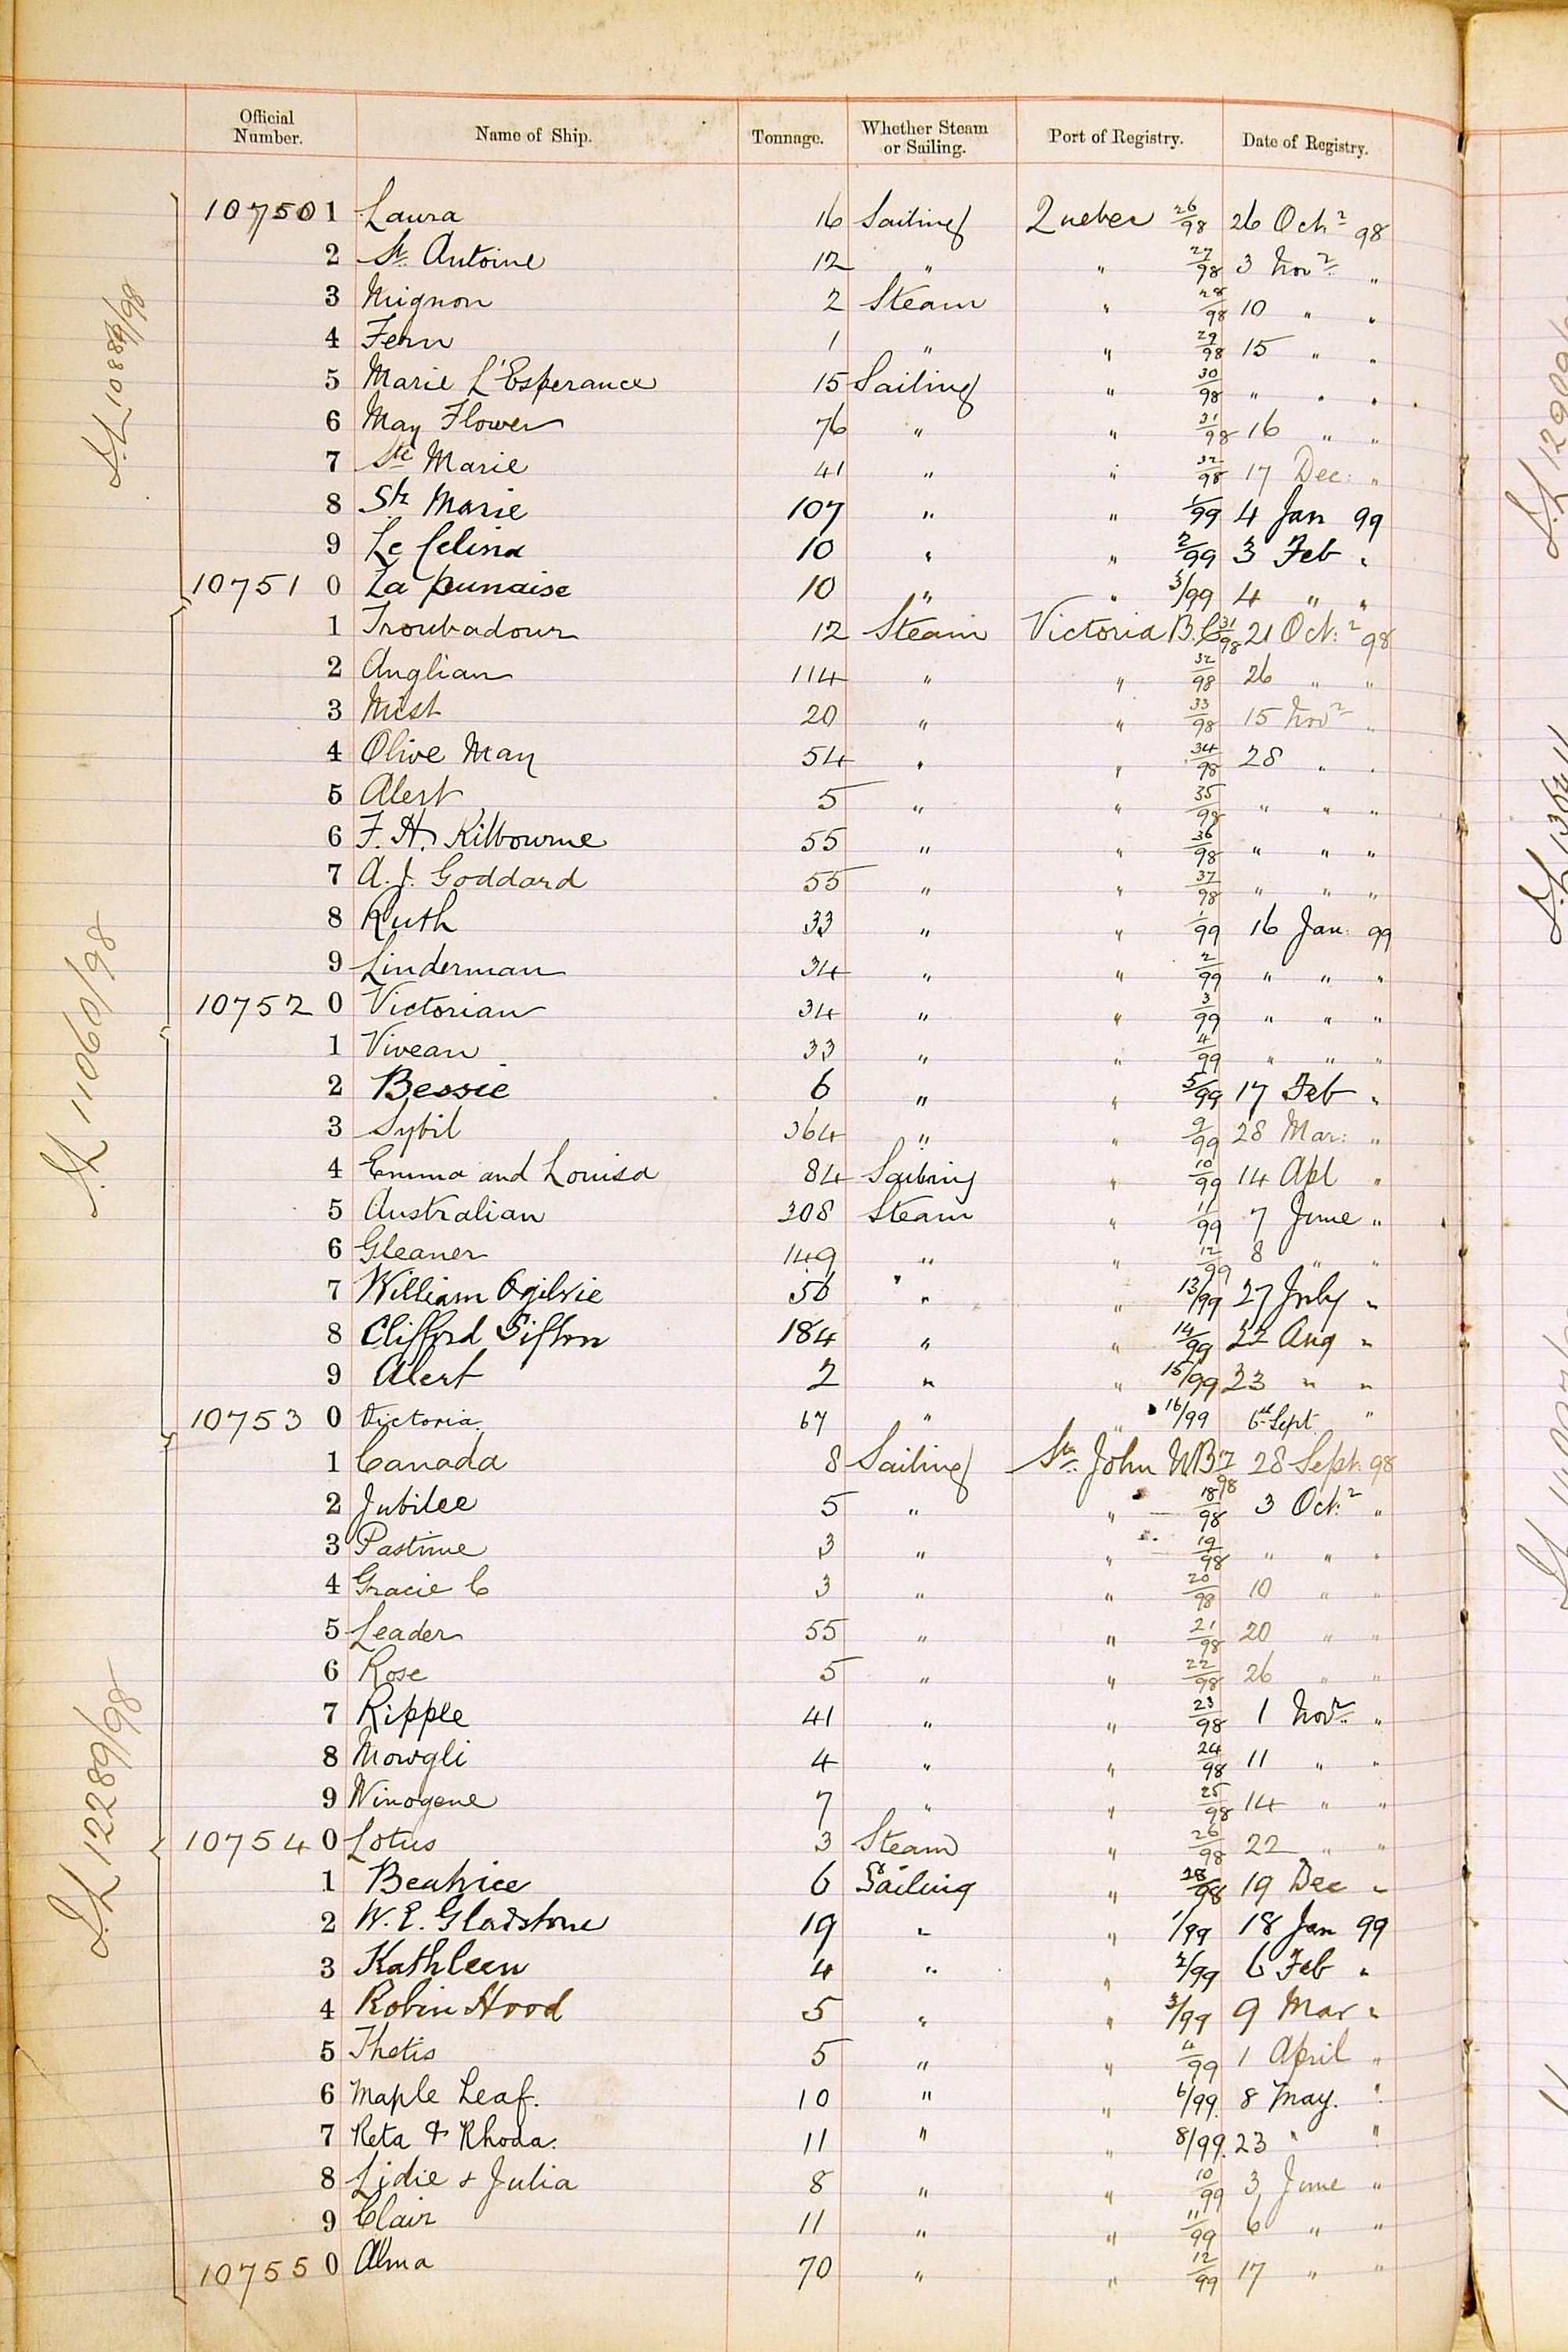 Official Number. Name of Ship. Tonnage. Whether Steam or Sailing. Port of Registry. Date of Registry.
107501 Laura 16 Sailing Quebec 26/98 26 Octr 98
2 St. Antoine 12 " " 27/98 3 Novr "
3 Mignon 2 Steam " 28/98 10 " "
4 Fern 1 " " 29/98 15 " "
5 Marie L'Esperance 15 Sailing " 30/98 " " "
6 May Flower 76 " " 31/98 16 " "
7 Ste Marie 41 " " 32/98 17 Dec: "
8 Ste Marie 107 " " 1/99 4 Jan 99
9 Le Celina 10 " " 2/99 3 Feb "
107510 La punaise 10 " " 3/99 4 " "
1 Troubadour 12 Steam Victoria B.C 31/98 21 Oct:r 98
2 Anglian 114 " " 32/98 26 " "
3 Mist 20 " " 33/98 15 Novr "
4 Olive May 54 " " 34/98 28 " "
5 Alert 5 " " 35/98 " " "
6 F. H. Kilbourne 55 " " 36/98 " " "
7 A. J. Goddard 55 " " 37/98 " " "
8 Ruth 33 " " 1/99 16 Jan: 99
9 Linderman 34 " " 2/99 " " "
107520 Victorian 34 " " 3/99 " " "
1 Vivean 33 " " 4/99 " " "
2 Bessie 6 " " 5/99 17 Feb "
3 Sybil 364 " " 9/99 28 Mar: "
4 Emma and Louisa 84 Sailing " 10/99 14 Apl "
5 Australian 308 Steam " 11/99 7 June "
6 Gleaner 149 " " 12/99 8 " "
7 William Ogilvie 56 " " 13/99 27 July "
8 Clifford Sifton 184 " " 14/99 22 Aug "
9 Alert 2 " " 15/99 23 " "
107530 Victoria. 67 " " 16/99 Sept "
1 Canada 8 Sailing St. John N.B 17/98 28 Sept: 98
2 Jubilee 5 " " 18/98 3 Oct:r "
3 Pastime 3 " " 19/98 " " "
4 Gracie C 3 " " 20/98 10 " "
5 Leader 55 " " 21/98 20 " "
6 Rose 5 " " 22/98 26 " "
7 Ripple 41 " " 23/98 1 Novr "
8 Mowgli 4 " " 24/98 11 " "
9 Winogene 7 " " 25/98 14 " "
107540 Lotus 3 Steam " 26/98 22 " "
1 Beatrice 6 Sailing " 28/98 19 Dec "
2 W. E. Gladstone 19 " " 1/99 18 Jan 99
3 Kathleen 4 " " 2/99 6 Feb "
4 Robin Hood 5 " " 3/99 9 Mar "
5 Thetis 5 " " 4/99 1 April "
6 Maple Leaf. 10 " " 6/99. 8 May. "
7 Reta & Rhoda. 11 " " 8/99. 23 " "
8 Lidie & Julia 8 " " 10/99 3 June "
9 Clair 11 " " 11/99 6 " "
107550 Alma 70 " " 12/99 17 " "
S.L 10889/98
S.L 11060/98
S.L 12289/98